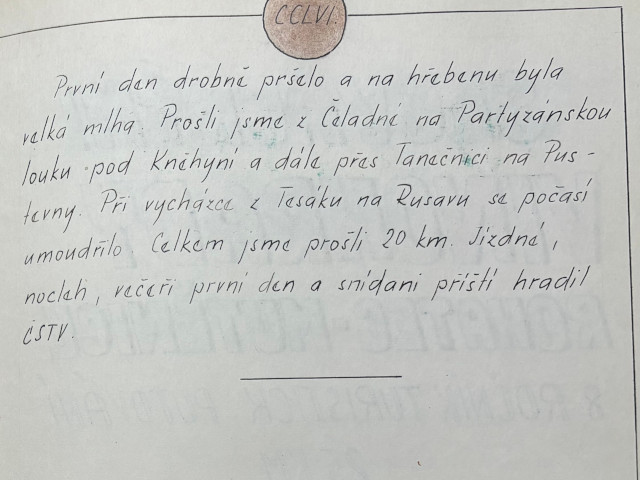 CCLVI.
První den drobně pršelo a na hřebenu byla
velká mlha. Prošli jsme z Čeladné na Partyzánskou
louku pod Kněhyní a dále přes Tanečnici na Pus-
tevny. Při vycházce z Tesáku na Rusavu se počasí
umoudřilo. Celkem jsme prošli 20 km. Jízdné,
nocleh, večeři první den a snídani příští hradil
ČSTV.